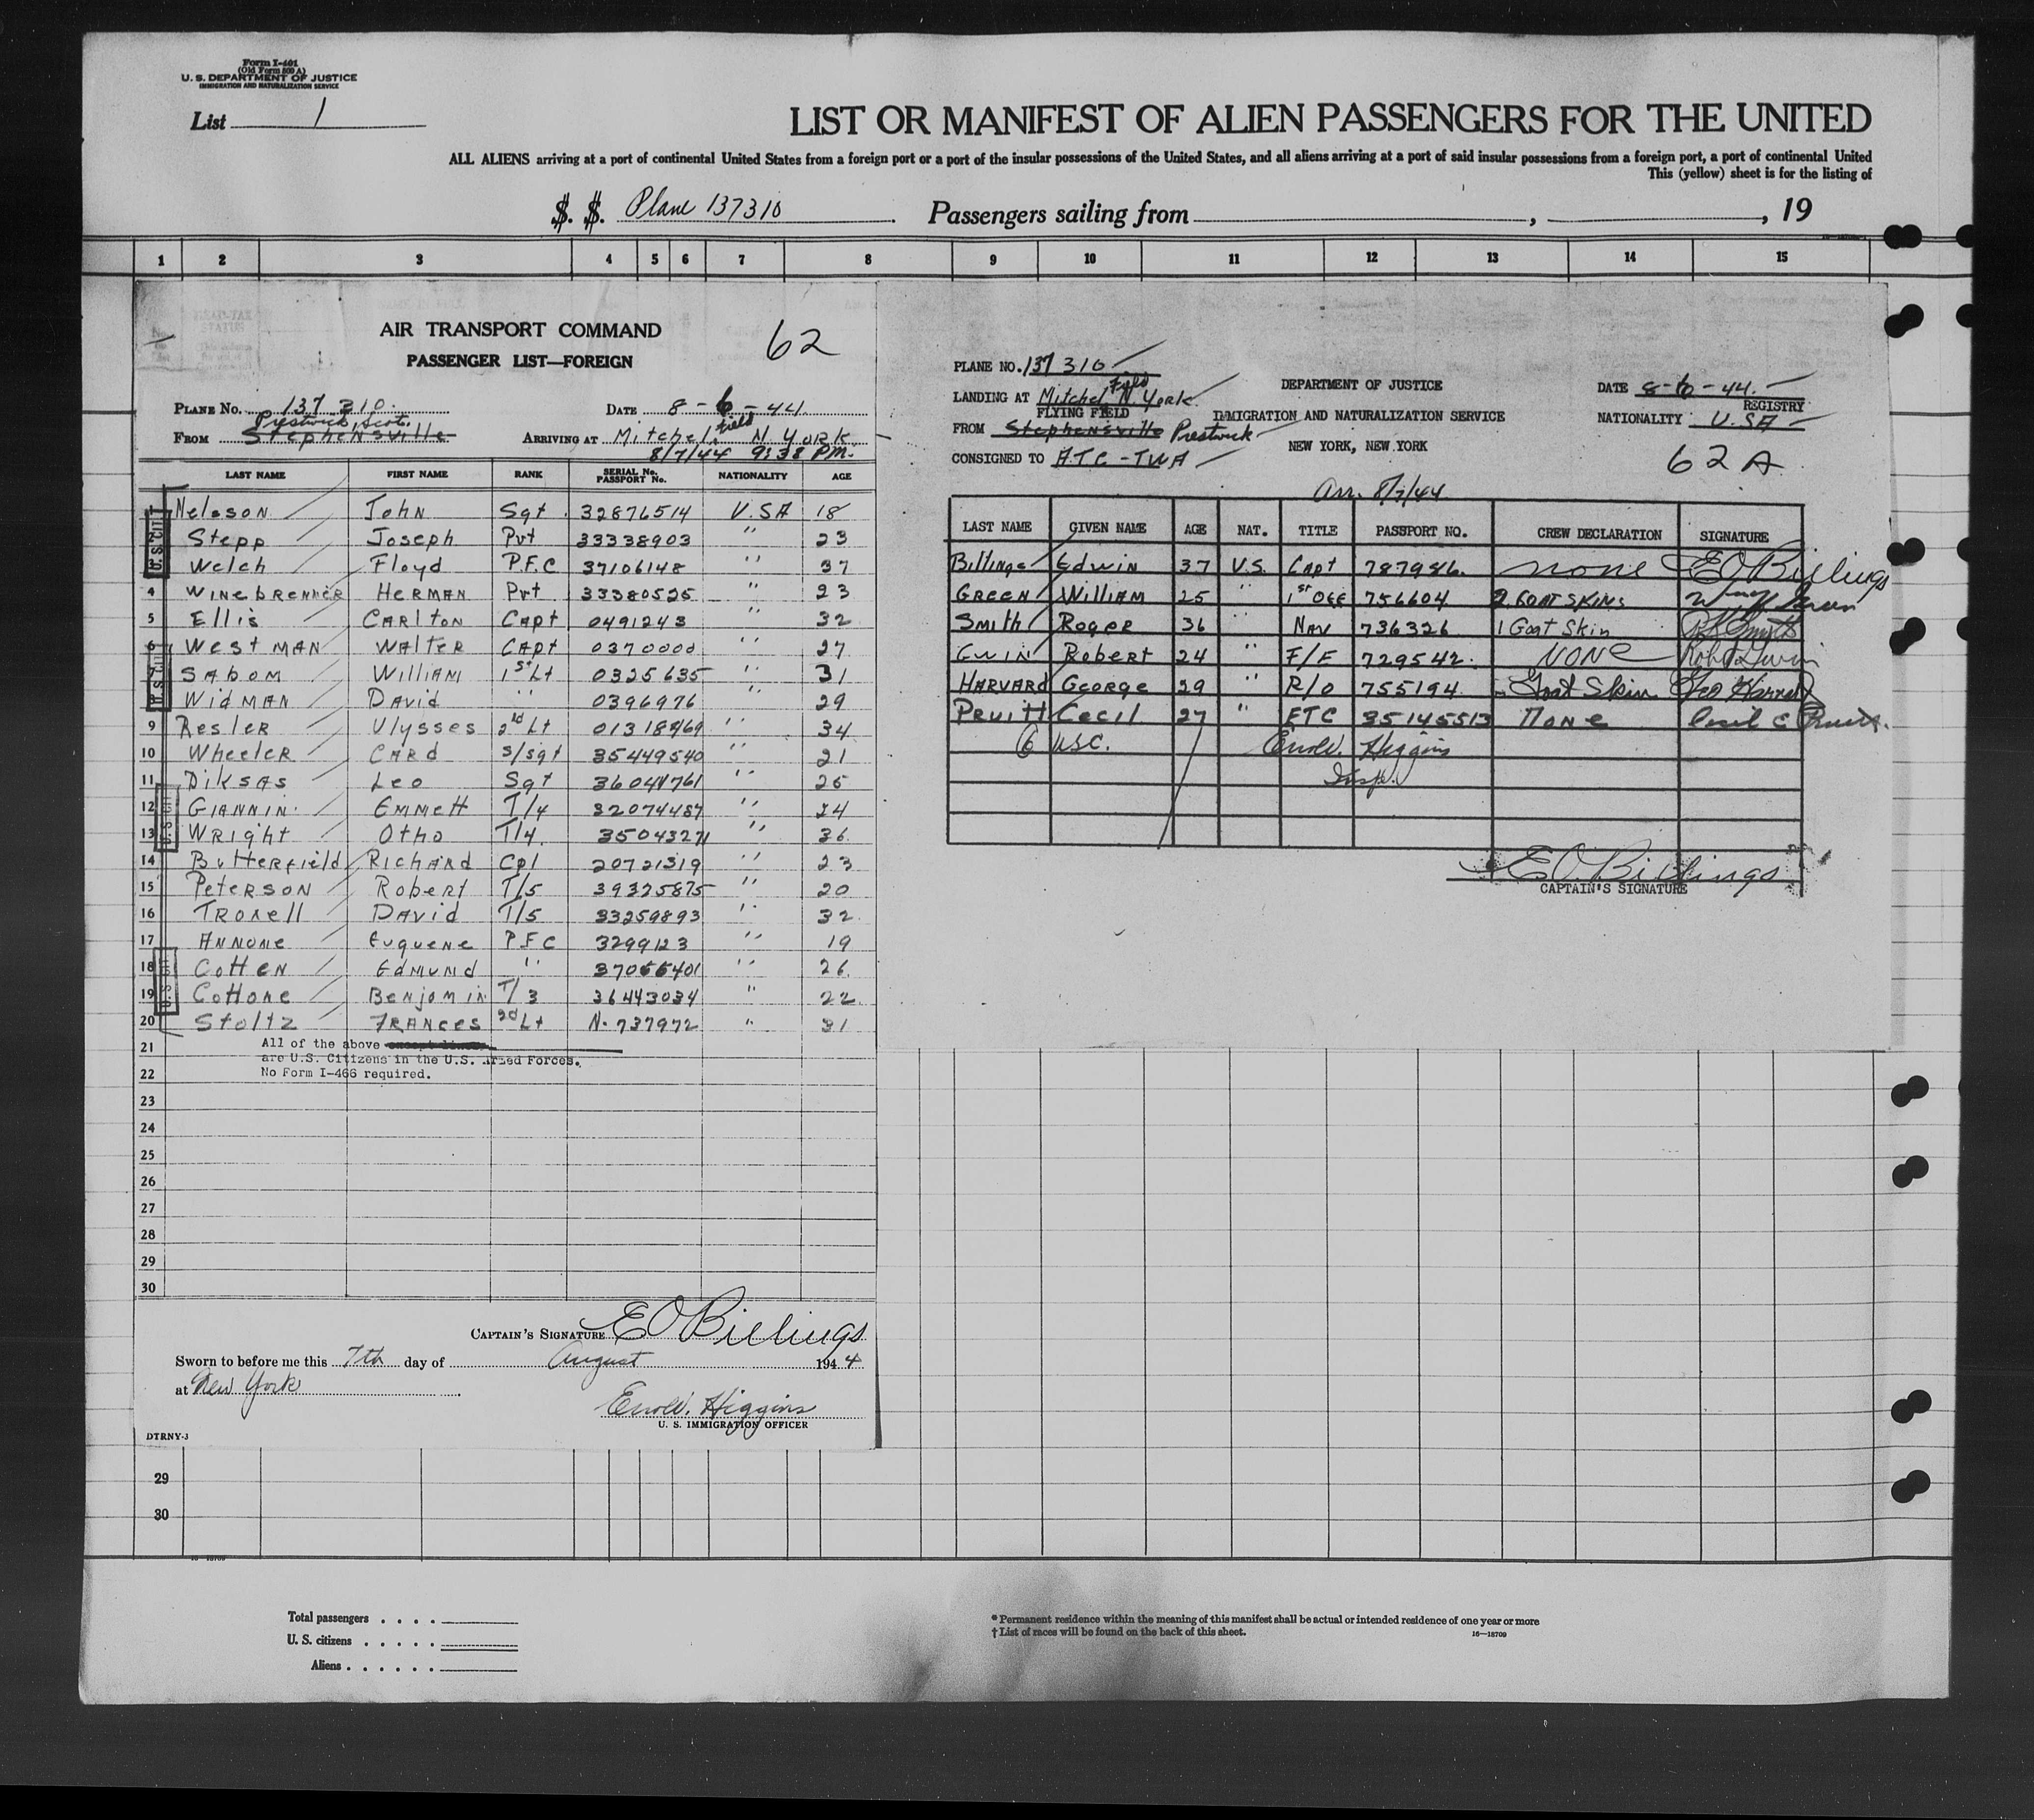 Form I-401
(Old Form 500 A)
U. S. DEPARTMENT OF JUSTICE
IMMIGRATION AND NATURALIZATION SERVICE
List 1
LIST OR MANIFEST OF ALIEN PASSENGERS FOR THE UNITED
ALL ALIENS arriving at a port of continental United States from a foreign port or a port of the insular possessions of the United States, and all aliens arriving at a port of said insular possessions from a foreign port, a port of continental United
This (yellow) sheet is for the listing of
S. S. Plane 137310 Passengers sailing from , , 19
1 2 3 4 5 6 7 8 9 10 11 12 13 14 15
AIR TRANSPORT COMMAND
PASSENGER LIST—FOREIGN
62
PLANE NO. 137 310. DATE 8-6-44.
Prestwick, Scot. Field
FROM Stephensville ARRIVING AT Mitchel. N. YORK.
8/7/44 9:38 PM.
LAST NAME FIRST NAME RANK SERIAL No. PASSPORT No. NATIONALITY AGE
Nelsson John Sgt. 32876514 U.SA 18
Stepp Joseph Pvt 33338903 " 23
Welch Floyd P.F.C 37106148 " 37
4 WINEBRENNER HERMAN Pvt 33380525 " 23
5 Ellis CARlTON Capt 0491243 " 32
6 WestMAN WALTER CApt 0370000 " 27
7 SAbOM WilliAM 1st Lt 0325635 " 31
WidMAN DAVid " 0396976 " 29
9 Resler Ulysses 2nd Lt 01318469 " 34
10 Wheeler CARd S/sgt 35449540 " 21
11 DiKSAS Leo Sgt 36041761 " 25
12 GIANNINI EMMEtt T/4 32074487 " 24
13 WRight Otho T/4. 35043271 " 36
14 Butterfield RICHARd Cpl 20721319 " 23
15 PeterSON Robert T/5 39325875 " 20
16 TROxell DAVid T/5 33259893 " 32
17 ANNONe Euquene P.F.C 3299123 " 19
18 CottEN EdMUNd " 37066401 " 26
19 Cottone BeNjomiN T/3 36443034 " 22
20 Stoltz FRANces 2nd Lt N-737972 " 31
21 All of the above except lines
are U.S. Citizens in the U.S. Armed Forces.
22 No Form I-466 required.
23
24
25
26
27
28
29
30
CAPTAIN'S SIGNATURE EO Billings
Sworn to before me this 7th day of August 1944
at New York
Errol W. Higgins
U. S. IMMIGRATION OFFICER
DTRNY-3
29
30
PLANE NO. 137 310
LANDING AT Mitchel Field N. York.
FLYING FIELD
FROM Stephensville Prestwick
CONSIGNED TO ATC-TWA
DEPARTMENT OF JUSTICE
IMMIGRATION AND NATURALIZATION SERVICE
NEW YORK, NEW YORK
DATE 8-6-44.
REGISTRY
NATIONALITY U.SA
62 A
Arr. 8/7/44
LAST NAME GIVEN NAME AGE NAT. TITLE PASSPORT NO. CREW DECLARATION SIGNATURE
Billings Edwin 37 U.S. Capt 787986. none EO Billings
GREEN William 25 " 1st OFF 756604 2 GOAT SKINS
Smith Roger 36 " NAV 736326 1 Goat Skin
GWIN Robert 24 " F/E 729542. NONE Robt Gwin
HARVARd George 29 " R/O 755194 Goat Skin Geo Harvard
PRuitt Cecil 27 " FTC 35145513 None Cecil C Pruitt.
6 USC. Errol W. Higgins
Insp.
EO. Billings
CAPTAIN'S SIGNATURE
Total passengers . . . .
U. S. citizens . . . . .
Aliens . . . . . .
* Permanent residence within the meaning of this manifest shall be actual or intended residence of one year or more
† List of races will be found on the back of this sheet. 16—18709